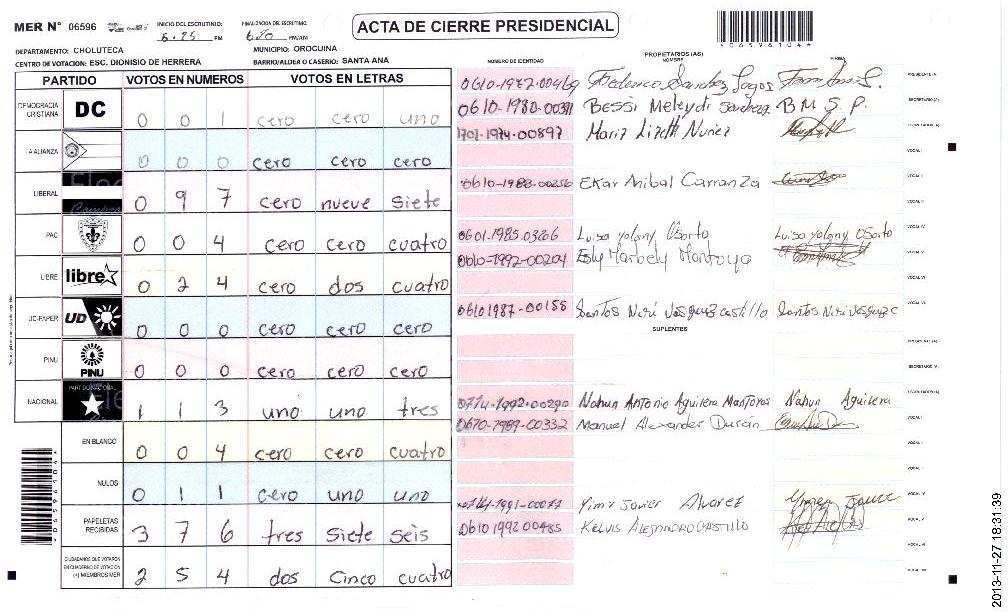 MER N° 06596 INICIO DEL ESCRUTINIO: 6:25 PM FINALIZACION DEL ESCRUTINIO: PM/AM
ACTA DE CIERRE PRESIDENCIAL
DEPARTAMENTO: CHOLUTECA MUNICIPIO: OROCUINA
CENTRO DE VOTACION: ESC. DIONISIO DE HERRERA BARRIO/ALDEA O CASERIO: SANTA ANA
PARTIDO VOTOS EN NUMEROS VOTOS EN LETRAS
DEMOCRACIA CRISTIANA DC 0 0 1 cero cero uno
LA ALIANZA 0 0 0 cero cero cero
LIBERAL 0 9 7 cero nueve siete
PAC 0 0 4 cero cero cuatro
LIBRE libre 0 2 4 cero dos cuatro
UD-FAPER UD 0 0 0 cero cero cero
PINU PINU 0 0 0 cero cero cero
NACIONAL PARTIDO NACIONAL 1 1 3 uno uno tres
EN BLANCO 0 0 4 cero cero cuatro
NULOS 0 1 1 cero uno uno
PAPELETAS RECIBIDAS 3 7 6 tres siete seis
CIUDADANOS QUE VOTARON EN CUADERNO DE VOTACION (+) MIEMBROS MER 2 5 4 dos cinco cuatro
PROPIETARIOS (AS)
NUMERO DE IDENTIDAD NOMBRE FIRMA
Federico Sanchez PRESIDENTE (A)
Bessi Meleydi Sanchez B M S P. SECRETARIO (A)
1701-1974-00897 Maria Lizeth Nuñez
0610-1988-00256 Ekar Anibal Carranza
0601-1985-03266 Luisa yolany Osorto Luisa yolany Osorto
0610-1992-00204 Esly Marbely Montoya
0610 1987-00158 Santos Neri Vasquez castillo Santos Neri Vasquez c
SUPLENTES
PRESIDENTE (A)
SECRETARIO (A)
0714-1992-00290 Nahun Antonio Aguilera Nahun Aguilera
Manuel Alexander Duran
Yimi Javier Alvarez
0610 1992 00485 KELVIS ALEJANDRO
2013-11-27 18:31:39